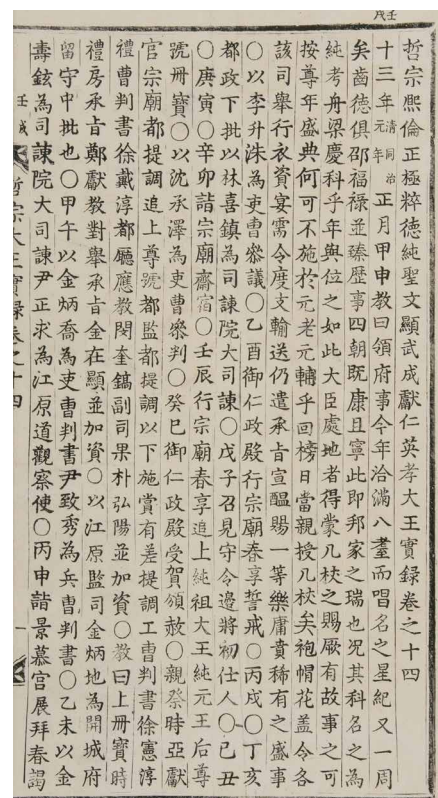 壬戌
哲宗熙倫正極粹德純聖文顯武成獻仁英孝大王實錄卷之十四
十三年清同治元年正月甲申敎曰領府事今年洽滿八耋而唱名之星紀又一周
矣齒德俱卲福祿並臻歷事四朝旣康且寧此卽邦家之瑞也況其科名之爲
純考舟梁慶科乎年與位之如此大臣處地者得蒙几杖之賜厥有故事之可
按尊年盛典何可不施於元老元輔乎回榜日當親授几杖矣袍帽花盖令各
該司舉行衣資宴需令度支輸送仍遣承旨宣醞賜一等樂庸賁稀有之盛事
○以李升洙爲吏曹叅議○乙酉御仁政殿行宗廟春享誓戒○丙戌○丁亥
都政下批以林喜鎭爲司諫院大司諫○戊子召見守令邊將初仕人○己丑
○庚寅○辛卯詣宗廟齋宿○壬辰行宗廟春享追上純祖大王純元王后尊
號冊寶○以沈承澤爲吏曹叅判○癸巳御仁政殿受賀頒赦○親祭時亞獻
官宗廟都提調追上尊號都監都提調以下施賞有差提調工曹判書徐憲淳
禮曹判書徐戴淳都廳應敎閔奎鎬副司果朴弘陽並加資○敎曰上冊寶時
禮房承旨鄭獻敎對舉承旨金在顯並加資○以江原監司金炳地爲開城府
留守中批也○甲午以金炳喬爲吏曹判書尹致秀爲兵曹判書○乙未以金
壽鉉爲司諫院大司諫尹正求爲江原道觀察使○丙申詣景慕宮展拜春謁
壬戌 哲宗大王實錄卷之十四 一